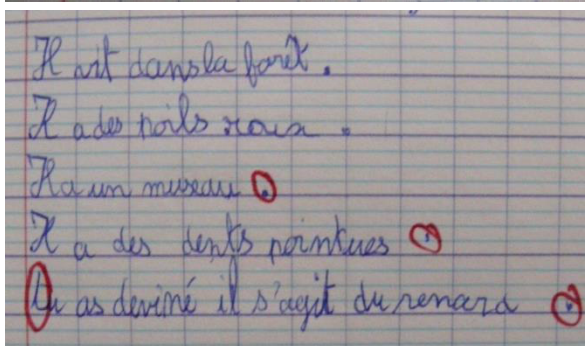 Il vit dans la forêt.
Il a des poils roux.
Il a un museau.
Il a des dents pointues.
Tu as deviné il s'agit du renard.